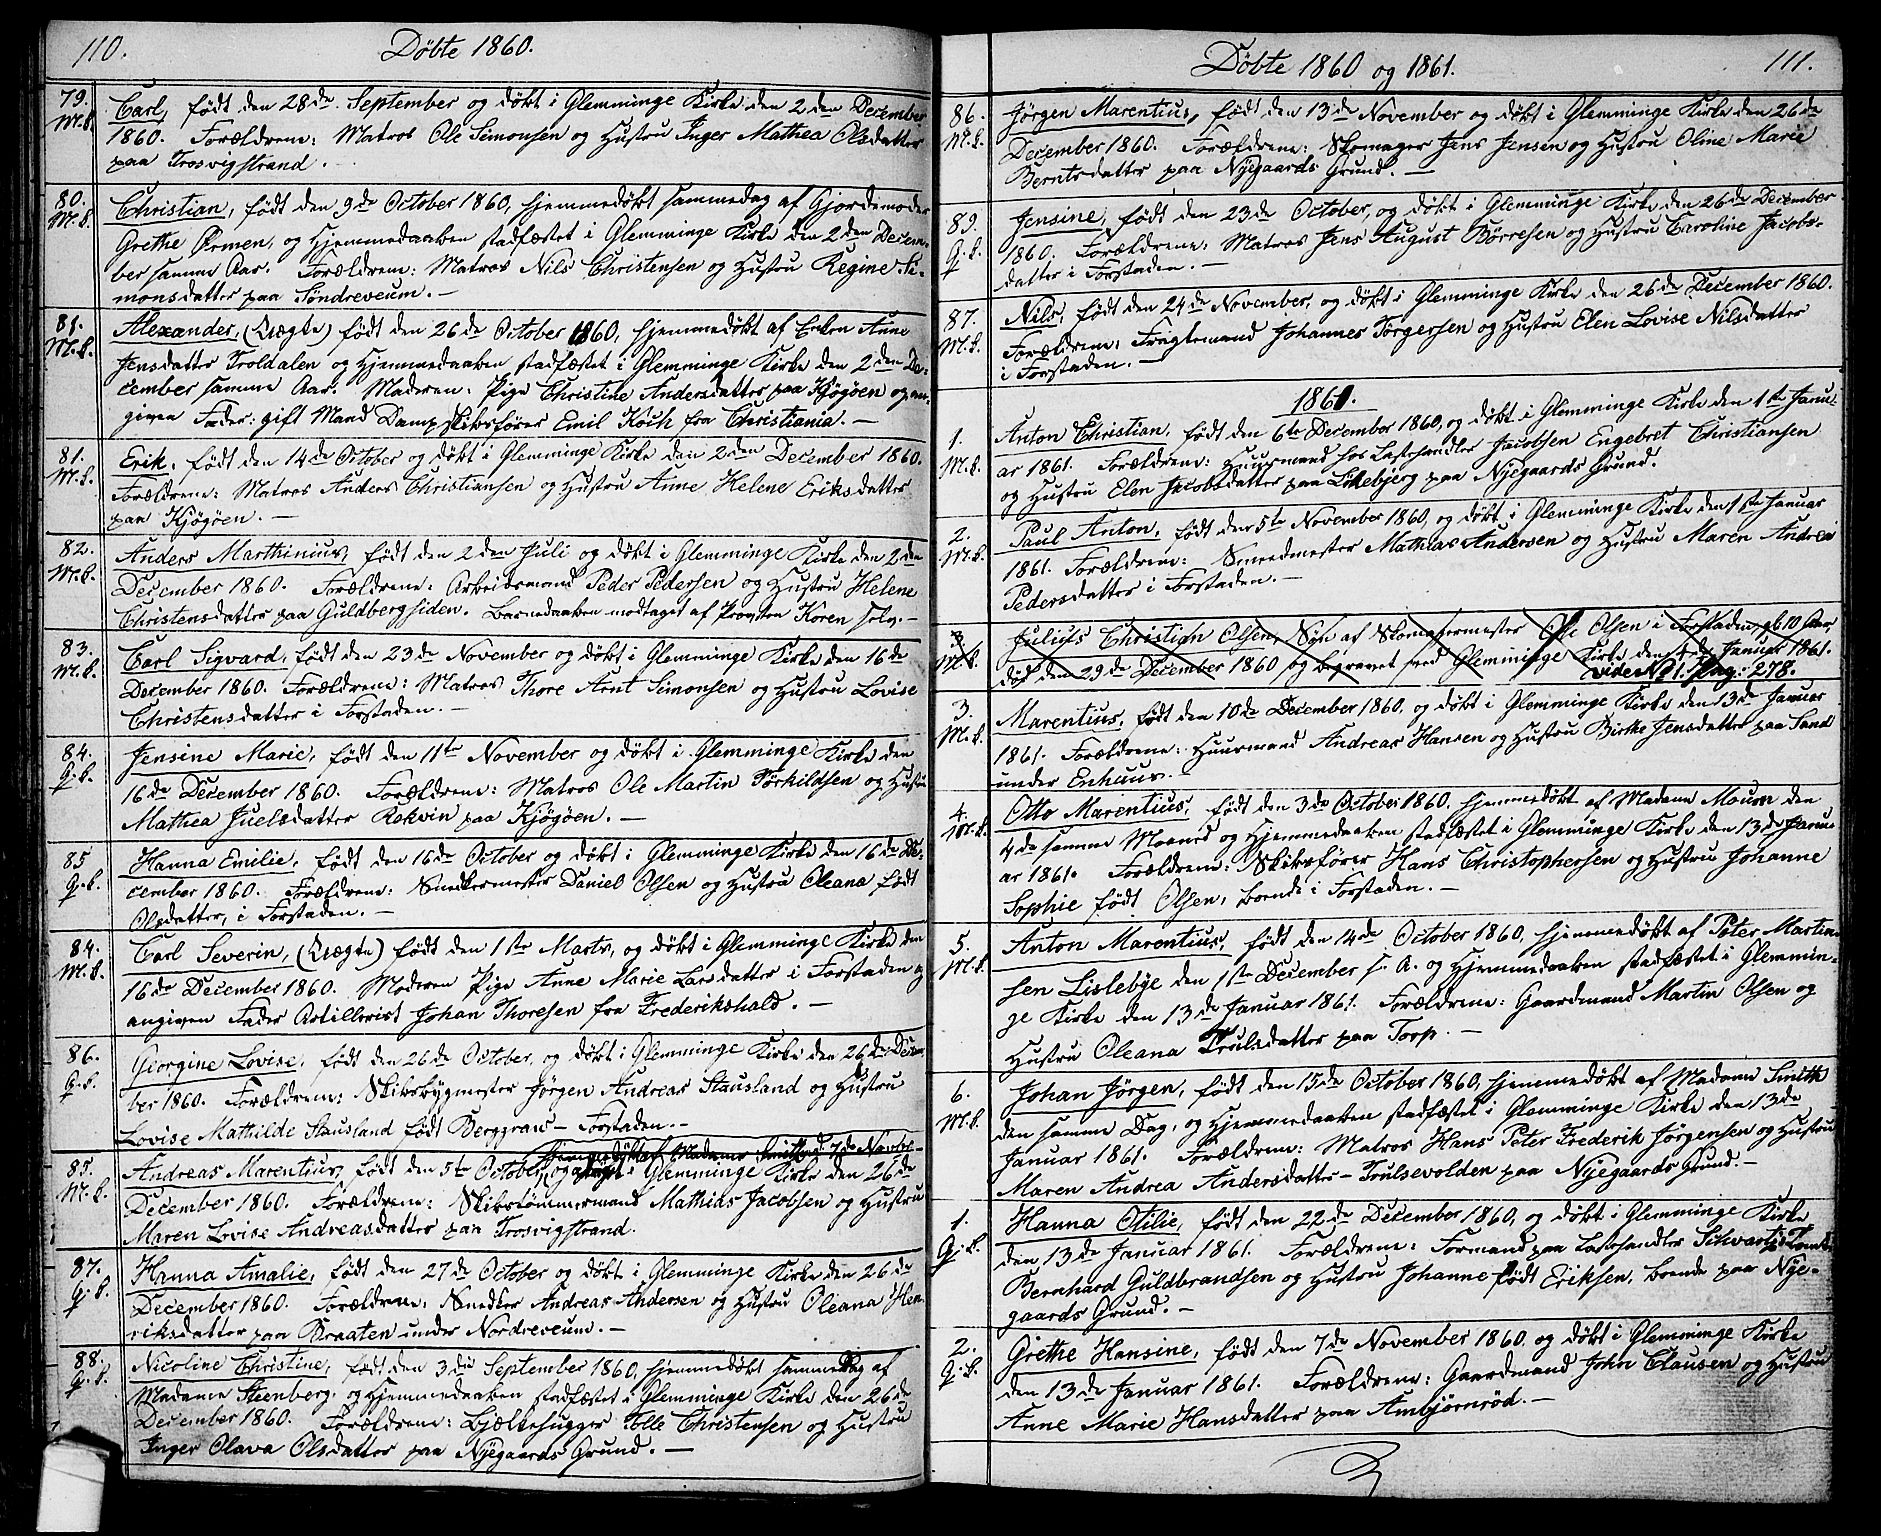 110. Döbte 1860.
79. M.k. Carl, født den 28de September og døbt i Glemminge Kirke den 2den December
1860. Forældrene: Matros Ole Simonsen og Hustru Inger Mathea Olsdatter
paa Trosvigstrand. —
80. M.k. Christian, født den 9de October 1860, hjemmedøbt sammedag af Gjordemoder
Grethe Ørmen, og Hjemmedaaben stadfæstet i Glemminge Kirke den 2den Decem-
ber samme Aar. Forældrene: Matros Nils Christensen og Hustru Regine Si-
monsdatter paa Söndreveum. —
81. M.k. Alexander, (Uægte) født den 26de October 1860, hjemmedøbt af Enken Anne
Jensdatter Troldalen og Hjemmedaaben stadfæstet i Glemminge Kirke den 2den De-
cember samme Aar. Moderen: Pige Christine Andersdatter paa Kjøgöen og an-
given Fader: gift Mand Dampskibsfører Emil Koch fra Christiania. —
81. M.k. Erik, født den 14de October og døbt i Glemminge Kirke den 2den December 1860.
Forældrene: Matros Anders Christiansen og Hustru Anne Helene Eriksdatter
paa Kjøgöen. —
82. M.k. Anders Marthinius, født den 2den Juli og døbt i Glemminge Kirke den 2den
December 1860. Forældrene: Arbeidsmand Peder Pedersen og Hustru Helene
Christensdatter paa Guldbergsiden. Barnedaaben modtaget af Provsten Koren selv. —
83. M.k. Carl Sigvard, født den 23de November og døbt i Glemminge Kirke den 16de
December 1860. Forældrene: Matros Thore Arnt Simonsen og Hustru Lovise
Christensdatter i Forstaden. —
84. Q.k. Jensine Marie, født den 11te November og døbt i Glemminge Kirke den
16de December 1860. Forældrene: Matros Ole Martin Törkildsen og Hustru
Mathea Juelsdatter Rekvin paa Kjøgöen. —
85 Q.k. Hanna Emilie, født den 16de October og døbt i Glemminge Kirke den 16de De-
cember 1860. Forældrene: Snedkermester Daniel Olsen og Hustru Oleana født
Olsdatter, i Forstaden. —
84. M.k. Carl Severin, (Uægte) født den 1ste Marts, og døbt i Glemminge Kirke den
16de December 1860. Moderen Pige Anne Marie Larsdatter i Forstaden og
angiven Fader Artillerist Johan Thoresen fra Frederikshald. —
86. Q.k. Georgine Lovise, født den 26de October, og døbt i Glemminge Kirke den 26de Decem-
ber 1860. Forældrene: Skibsbygmester Jørgen Andreas Stausland og Hustru
Lovise Mathilde Stausland født Berggraw — Forstaden. —
hjemmedøbt af Madame Smith d. 7de Novbr.
85. M.k. Andreas Marentius, født den 5te October, og i Glemminge Kirke den 26de
December 1860. Forældrene: Skibstømmermand Mathias Jacobsen og Hustru
Maren Lovise Andreasdatter paa Trosvigstrand.
87. Q.k. Hanna Amalie, født den 27de October og døbt i Glemminge Kirke den 26de
December 1860. Forældrene: Snedker Andreas Andersen og Hustru Oleana Hen-
riksdatter paa Braaten under Nordreveum. —
88. Q.k. Nicoline Christine, født den 3die September 1860, hjemmedøbt sammedag af
Madame Steenberg, og Hjemmedaaben stadfæstet i Glemminge Kirke den 26de
December 1860. Forældrene: Bjælkehugger Tolle Christensen og Hustru
Inger Olava Olsdatter paa Nyegaards Grund. —
Döbte 1860 og 1861. 111.
86. M.k. Jørgen Marentius, født den 13de November og døbt i Glemminge Kirke den 26de
December 1860. Forældrene: Skomager Jens Jensen og Hustru Oline Marie
Berntsdatter paa Nyegaards Grund. —
89. Q.k. Jensine, født den 23de October, og døbt i Glemminge Kirke den 26de December
1860. Forældrene: Matros Jens August Börresen og Hustru Caroline Jacobs-
datter i Forstaden. —
87. M.k. Nils, født den 24de November, og døbt i Glemminge Kirke den 26de December 1860.
Forældrene: Fragtemand Johannes Törgersen og Hustru Elen Lovise Nilsdatter
i Forstaden. —
1861.
1. M.k. Anton Christian, født den 6te December 1860, og døbt i Glemminge Kirke den 1ste Janu-
ar 1861. Forældrene: Huusmand hos Lasthandler Jacobsen Engebret Christiansen
og Hustru Elen Jacobsdatter paa Likebjerg paa Nyegaards Grund.
2. M.k. Paul Anton, født den 5te November 1860, og døbt i Glemminge Kirke den 1ste Januar
1861. Forældrene: Smedmester Mathias Andersen og Hustru Maren Andrea
Pedersdatter i Forstaden. —
3 M.k. Julius Christian Olsen, Søn af Skomagermester Ole Olsen i Forstaden, 10 Aar,
død den 29de December 1860 og begravet ved Glemminge Kirke den 4de Januar 1861.
vide No 1. Pag: 278.
3. M.k. Marentius, født den 10de December 1860, og døbt i Glemminge Kirke den 13de Januar
1861. Forældrene: Huusmand Andreas Hansen og Hustru Birthe Jensdatter paa Sand
under Enhuus. —
4. M.k. Otto Marentius, født den 3de October 1860, hjemmedøbt af Madame Moum den
4de samme Maaned og Hjemmedaaben stadfæstet i Glemminge Kirke den 13de Janu-
ar 1861. Forældrene: Skibsfører Hans Christophersen og Hustru Johanne
Sophie født Olsen, boende i Forstaden. —
5. M.k. Anton Marentius, født den 14de October 1860, hjemmedøbt af Peter Martin-
sen Lislebye den 1ste December s. A. og Hjemmedaaben stadfæstet i Glemmin-
ge Kirke den 13de Januar 1861. Forældrene: Gaardmand Martin Olsen og
Hustru Oleana Trulsdatter paa Torp. —
6. M.k. Johan Jørgen, født den 15de October 1860, hjemmedøbt af Madame Smith
den samme Dag, og Hjemmedaaben stadfæstet i Glemminge Kirke den 13de
Januar 1861. Forældrene: Matros Hans Peter Frederik Jørgensen og Hustru
Maren Andrea Andersdatter — Trulsevolden paa Nyegaards Grund. —
1. Q.k. Hanna Otilie, født den 22de December 1860, og døbt i Glemminge Kirke
den 13de Januar 1861. Forældrene: Formand paa Lasthandler Schwartz's Tomt
Bernhard Guldbrandsen og Hustru Johanne født Eriksen, boende paa Nye-
gaards Grund. —
2. Q.k. Grethe Hansine, født den 7de November 1860 og døbt i Glemminge Kirke
den 13de Januar 1861. Forældrene: Gaardmand John Clausen og Hustru
Anne Marie Hansdatter paa Ambjörnröd. —